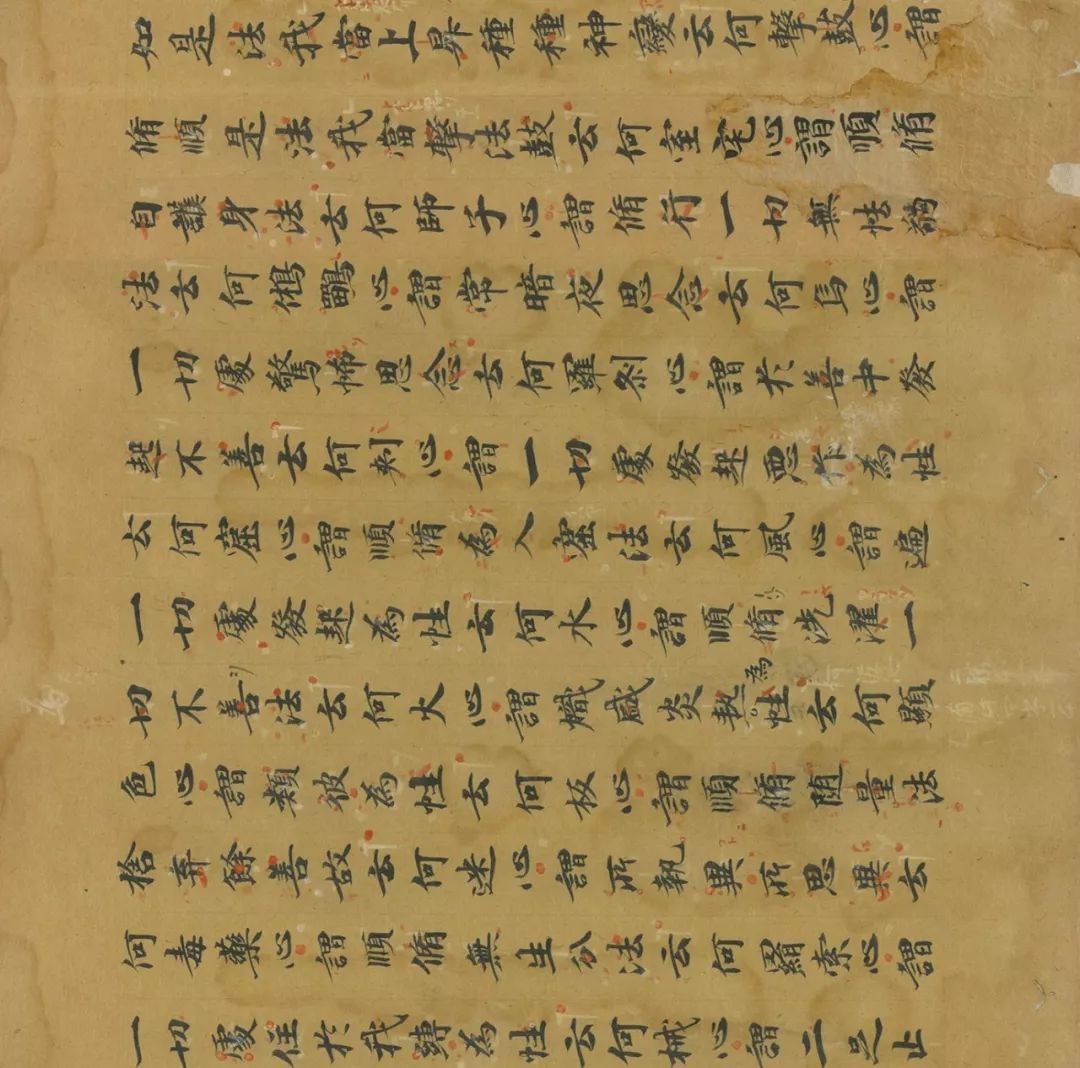 如是法我當上昇種種神變云何擊鼓心謂
脩順是法我當擊法鼓云何室宅心謂順脩
自護身法云何師子心謂脩行一切無怯弱
法云何鵂鶹心謂常暗夜思念云何烏心謂
一切處驚怖思念云何羅剎心謂於善中發
起不善云何刺心謂一切處發起惡作為性
云何窟心謂順脩為入窟法云何風心謂遍
一切處發起為性云何水心謂順脩洗濯一
切不善法云何火心謂熾盛炎熱為性云何顯
色心謂類彼為性云何板心謂順脩隨量法
捨弃餘善故云何迷心謂所執異所思異云
何毒藥心謂順脩無生分法云何羂索心謂
一切處住於我縛為性云何械心謂二足止